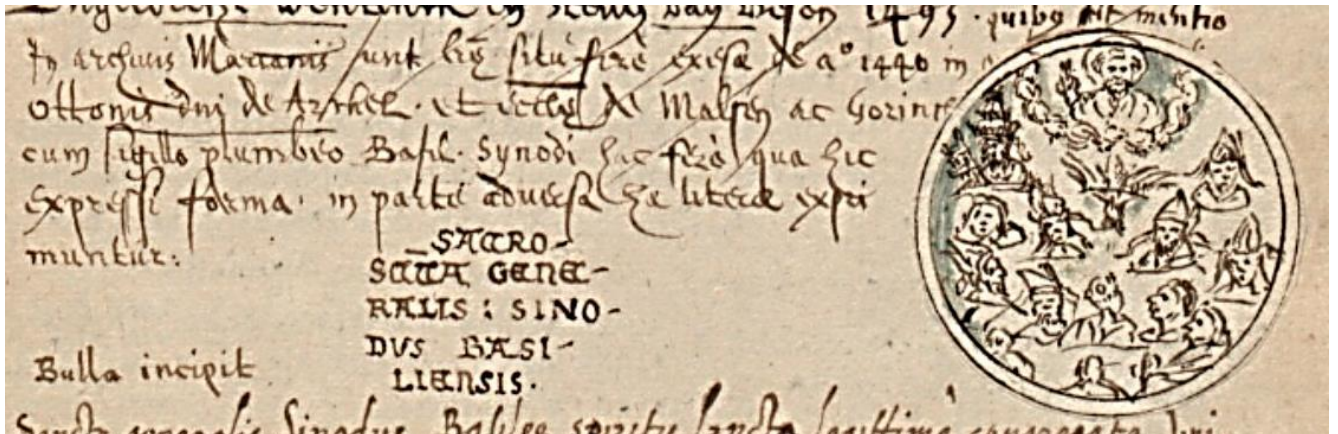 in Heeren van Wesen 1495. quibus fit mentio
In archivis Marianis sunt literæ situ ferè exesæ de a° 1440 in
Ottonis dni de Arckel. et eccles de Malsen ac Gorinch
cum sigillo plumbeo Basil. Synodi hac ferè qua hic
expressi forma. in parte adversa hæ literæ expri
muntur:
SACRO-
SCTA GENE-
RALIS : SINO-
DVS BASI-
LIENSIS.
Bulla incipit
Sancta generalis Sinodus Basileæ spiritu sancto legittimè congregata